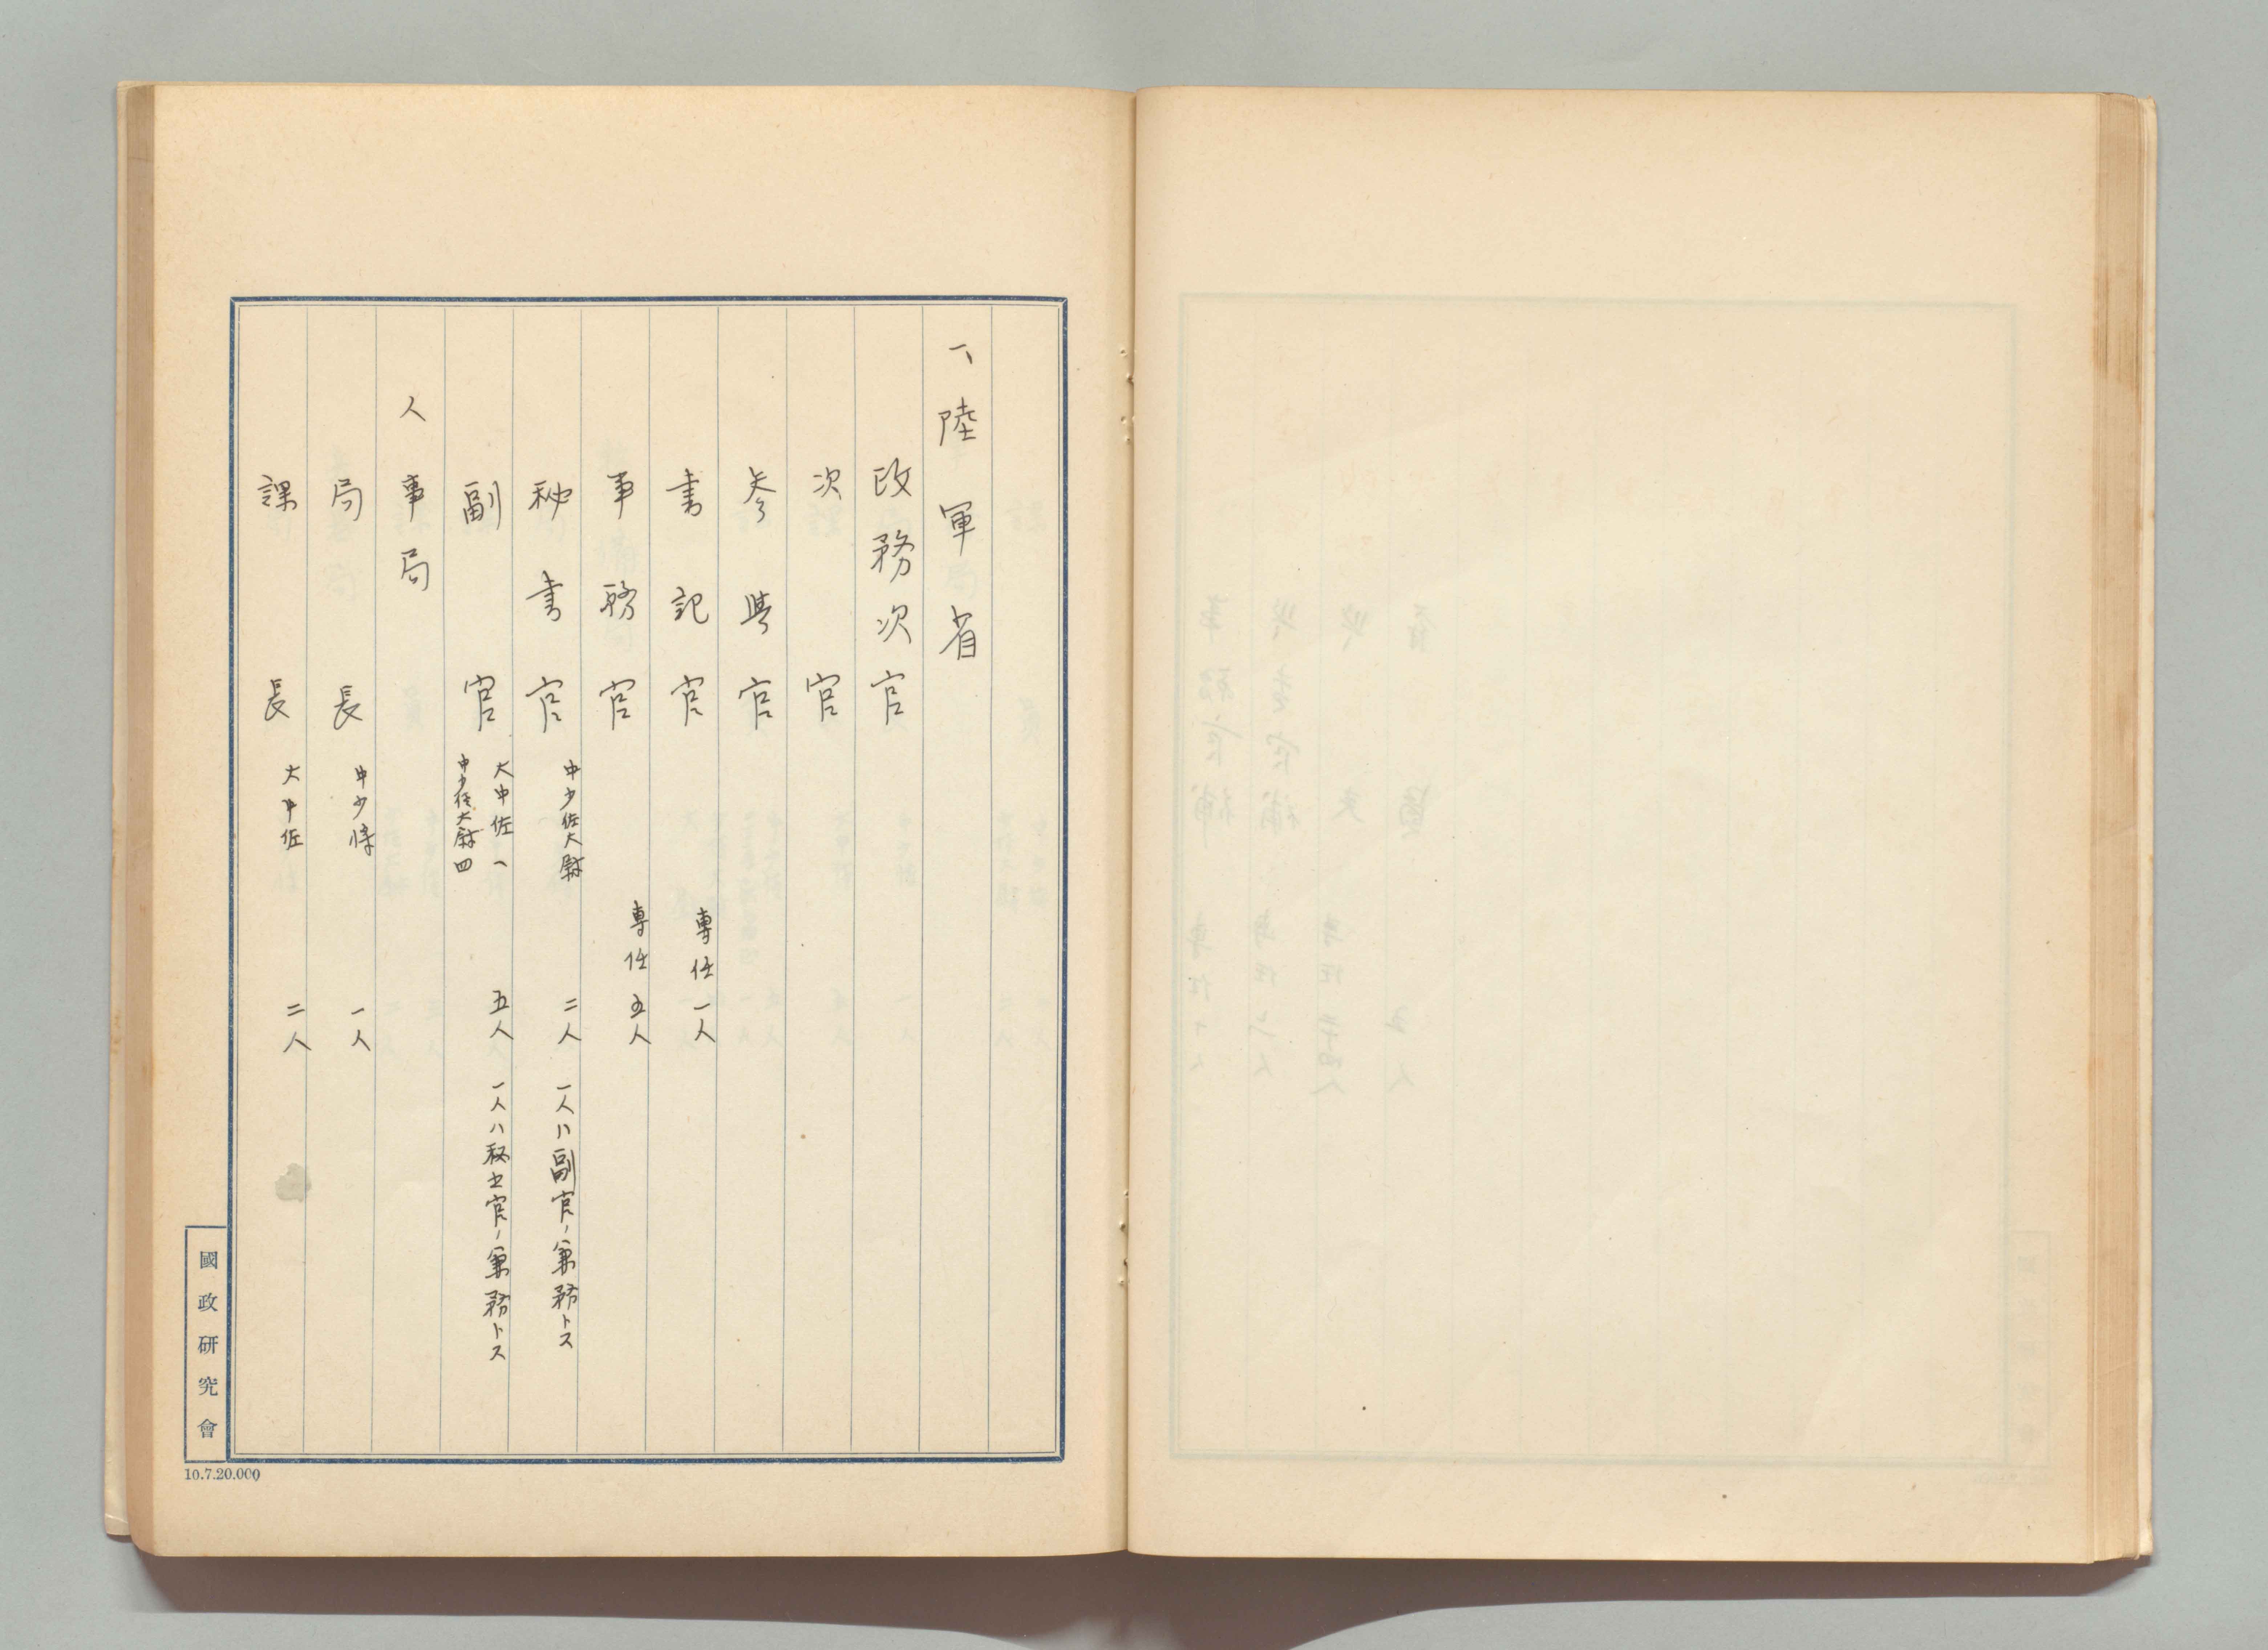 一、陸軍省
政務次官
次官
参与官
書記官 専任一人
事務官 専任五人
秘書官 中少佐大尉 二人 一人ハ副官ノ兼務トス
副官 大中佐一 中少佐大尉四 五人 一人ハ秘書官ノ兼務トス
人事局
局長 中少将 一人
課長 大中佐 二人
國政研究會
10.7.20.000